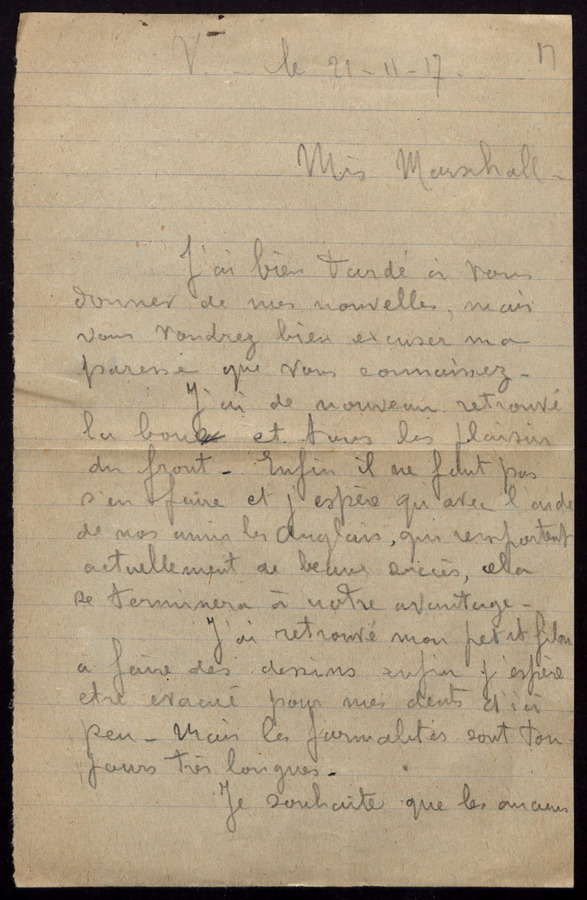 17
V. - le 21-11-17-
Mis Marshall -
J'ai bien tardé à vous
donner de mes nouvelles, mais
vous voudrez bien excuser ma
paresse que vous connaissez -
J'ai de nouveau retrouvé
la boue et tous les plaisirs
du front - Enfin il ne faut pas
s'en faire et j'espère qu'avec l'aide
de nos amis les Anglais, qui remportent
actuellement de beaux succès, cela
se terminera à notre avantage -
J'ai retrouvé mon petit filon
à faire des dessins enfin j'espère
etre evacué pour mes dents d'ici
peu - Mais les formalités sont tou
jours très longues -
Je souhaite que les anciens